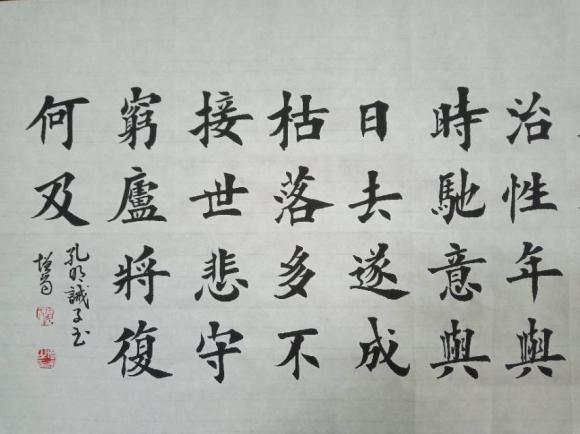 治性年與
時馳意與
日去遂成
枯落多不
接世悲守
窮廬將復
何及
孔明誡子書